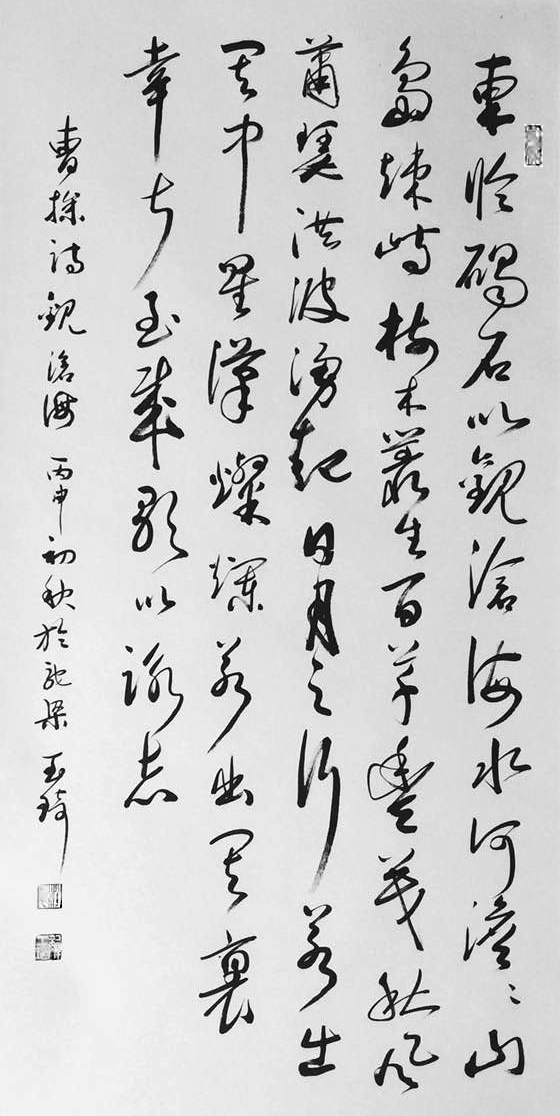 東臨碣石以觀滄海水何澹〻山
島竦峙樹木叢生百草豐茂秋風
蕭瑟洪波湧起日月之行若出
其中星漢燦爛若出其裏
幸甚至哉歌以詠志
曹操詩觀滄海 丙申初秋於駝梁 玉琦